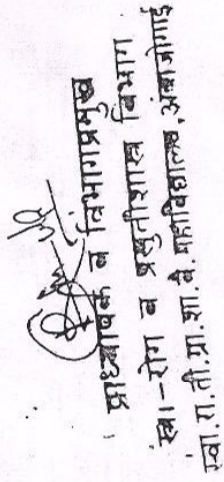 प्राध्यापक व विभागप्रमुख
स्त्री-रोग व प्रसुतीशास्त्र विभाग
स्वा.रा.ती.ग्रा.शा.वै.महाविद्यालय,अंबाजोगाई